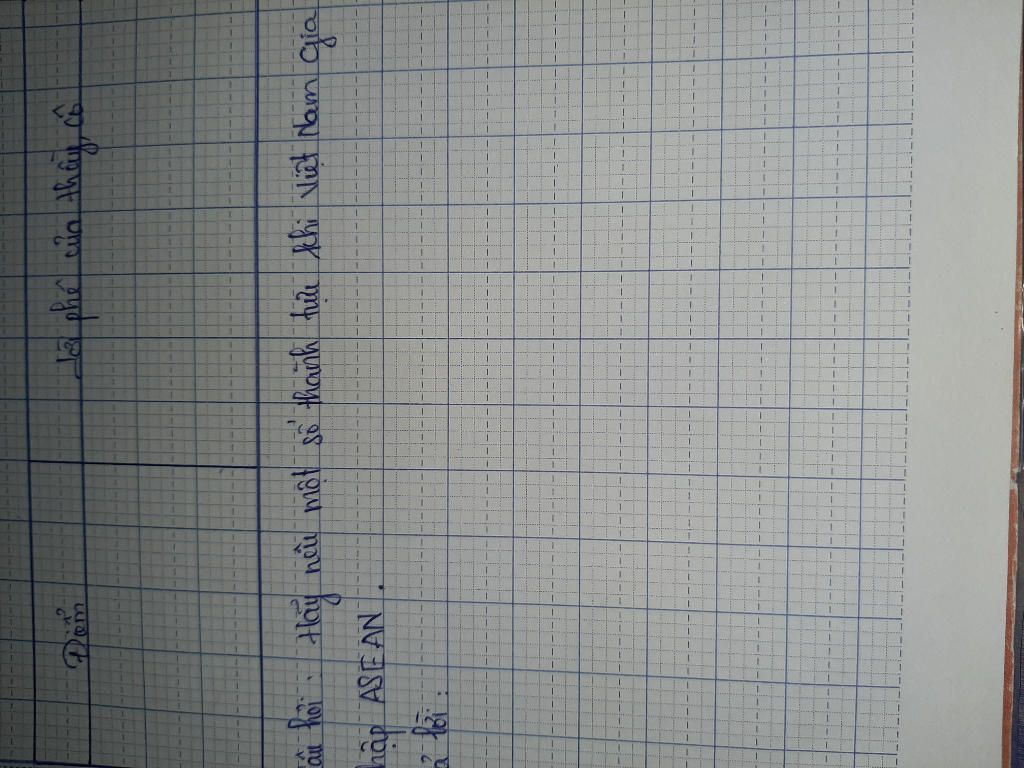 Điểm
Lời phê của thầy cô
âu hỏi : Hãy nêu một số thành tựu khi Việt Nam gia
hập ASEAN .
ả lời :